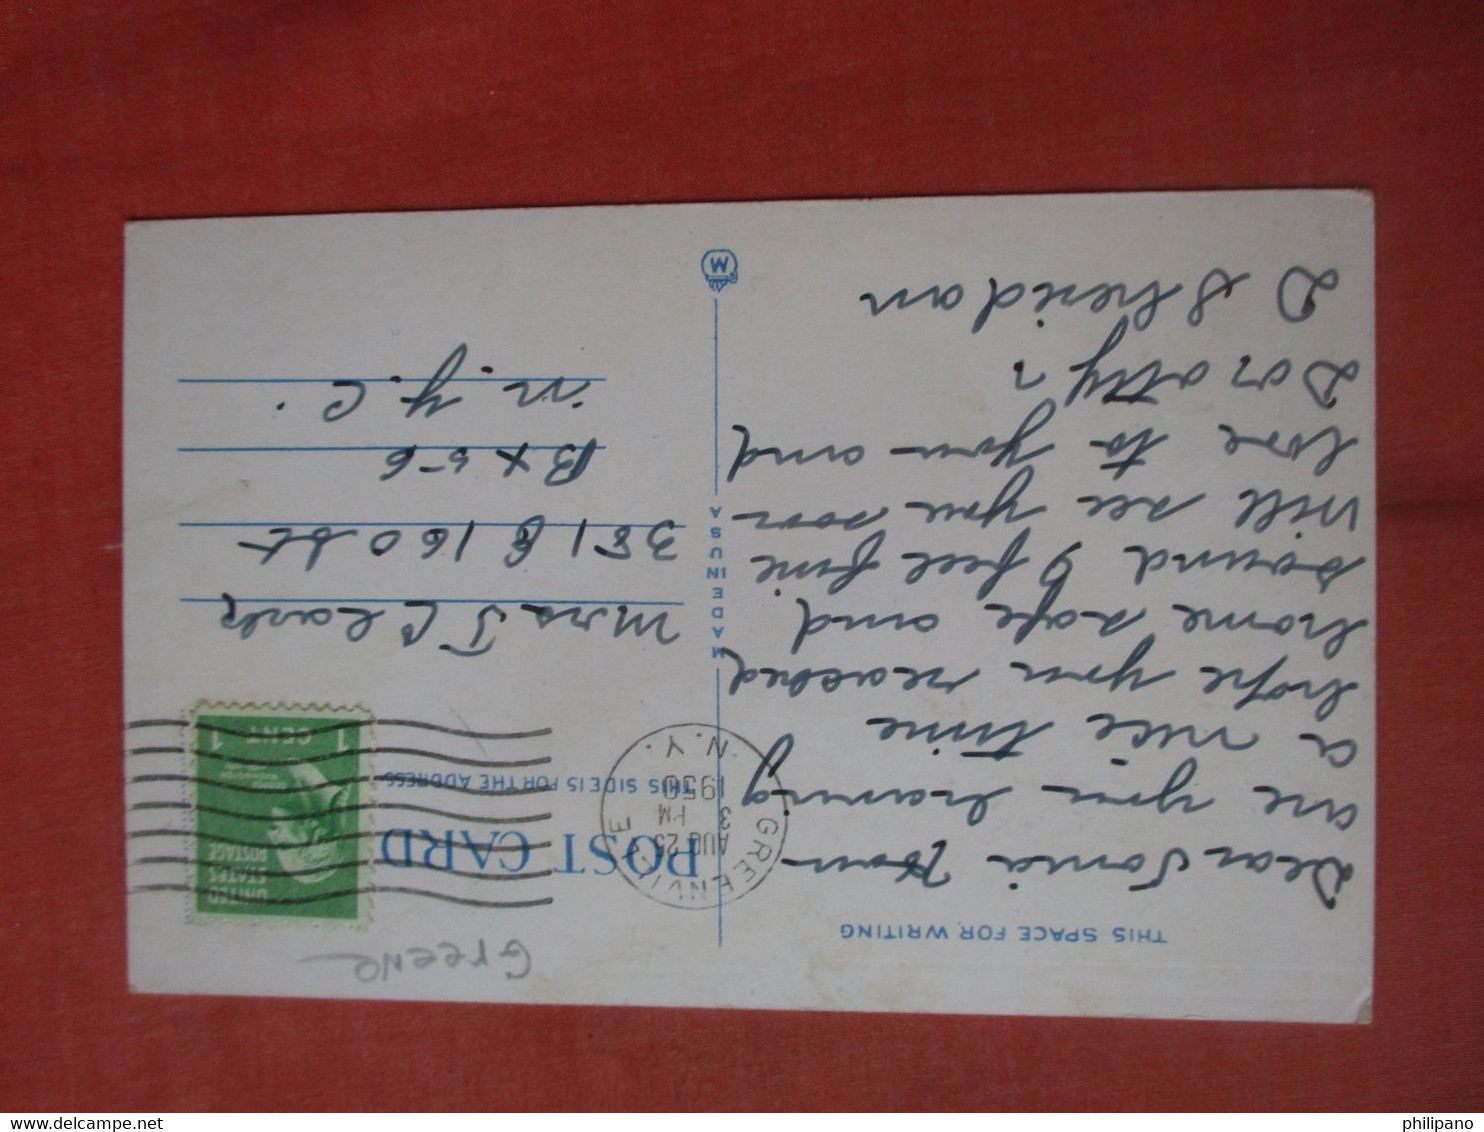 THIS SPACE FOR WRITING
Dear Sonia How
are you having
a nice time
hope you reached
home safe and
sound I feel fine
will see you soon
love to you and
Dorothy
D Sheridan
MADE IN USA
W
Greene
POST CARD
THIS SIDE IS FOR THE ADDRESS
GREENVILLE
AUG 23
3 PM
1950
N.Y.
UNITED
STATES
POSTAGE
1 CENT 1
Mrs J Clark
381 E 160 St
Bx 56
N.Y.C.
philipano